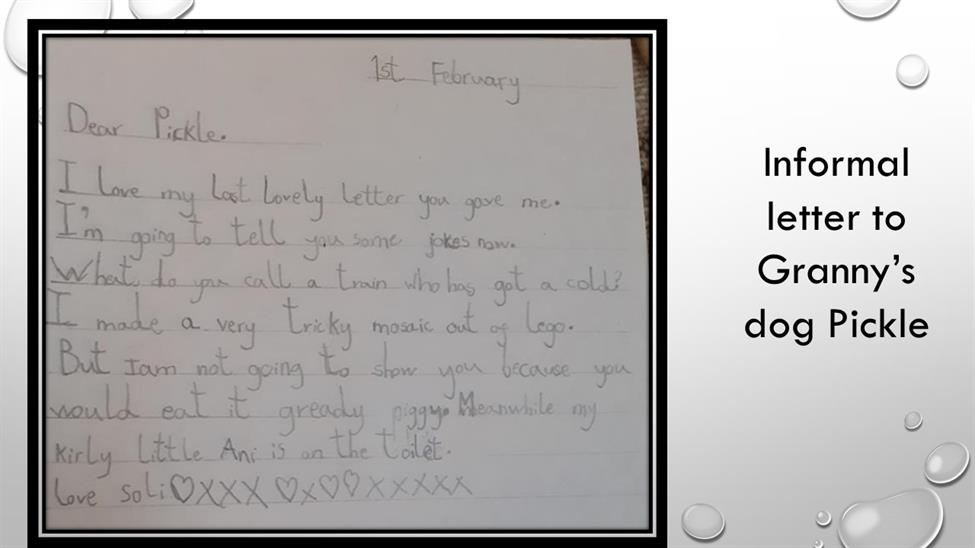 1st February
Dear Pickle.
I love my last lovely letter you gave me.
I'm going to tell you some jokes now.
What do you call a train who has got a cold?
I made a very tricky mosaic out of lego.
But I am not going to show you because you
would eat it gready piggy. Meanwhile my
kirly little Ani is on the toilet.
love soli♡XXX ♡X♡♡XXXXX
Informal
letter to
Granny's
dog Pickle